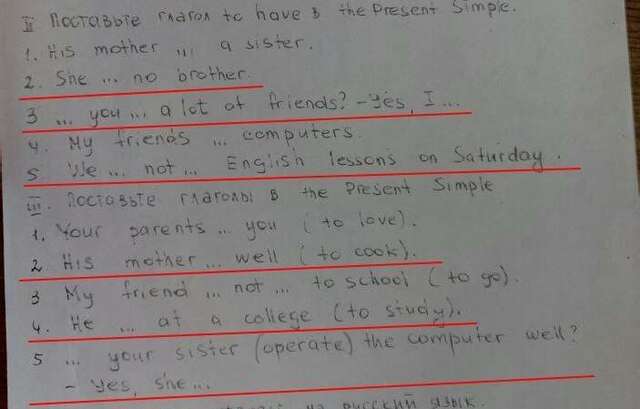 II Поставьте глагол to have в the Present Simple.
1. His mother ... a sister.
2. She ... no brother.
3 ... you ... a lot of friends? - Yes, I ...
4. My friends ... computers.
5 We ... not ... English lessons on Saturday.
III. Поставьте глаголы в the Present Simple
1. Your parents ... you (to love).
2 His mother ... well (to cook).
3 My friend ... not ... to school (to go).
4. He ... at a college (to study).
5 ... your sister (operate) the computer well?
- Yes, she ...
на русский язык.